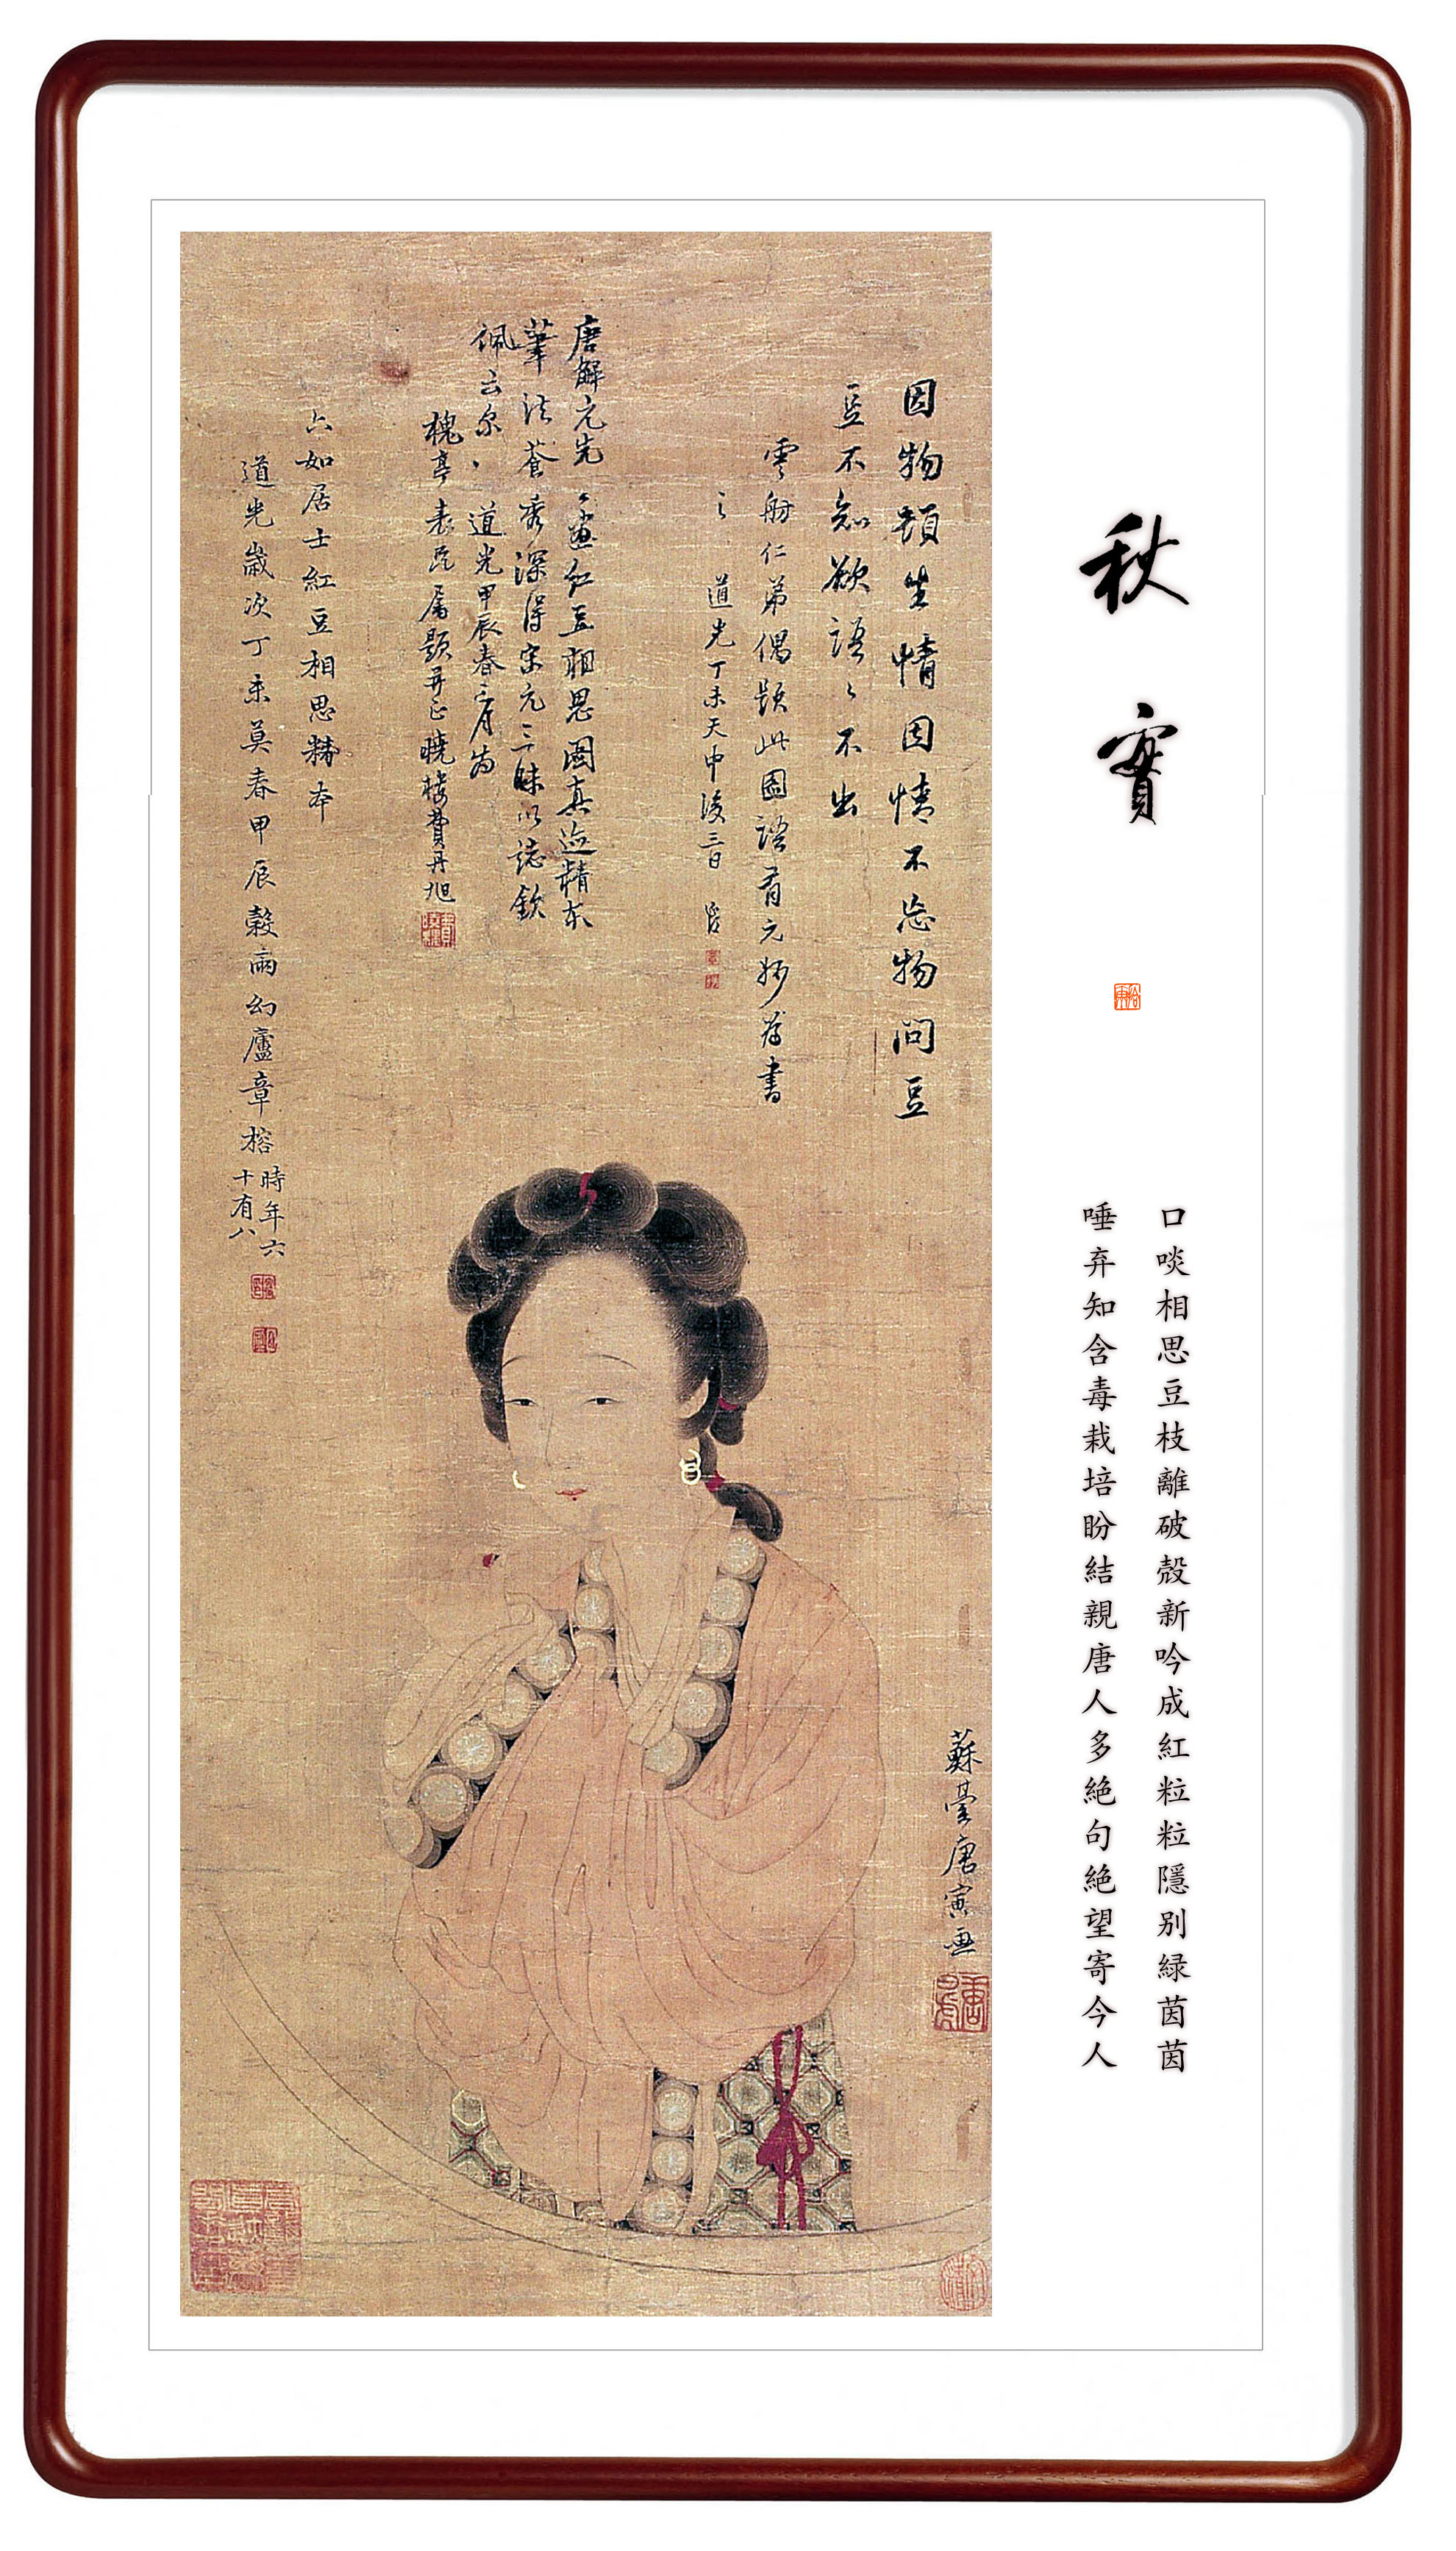 秋實
口啖相思豆枝離破殼新吟成紅粒粒隱别緑茵茵
唾弃知含毒栽培盼結親唐人多絶句絶望寄今人
因物頓生情因情不忘物問豆
豆不知欲語〻不出
雲舫仁弟偶題此圖語有元妙为書
之 道光丁未天中後三日
唐解元先〻畫紅豆相思圖真迹精本
筆法蒼秀深得宋元三昧以誌欽
佩云尔道光甲辰春三月为
槐亭表兄屬題并正曉樓費丹旭
六如居士紅豆相思精本
道光歲次丁未莫春甲辰穀雨幻廬章榕
時年六
十有八
蘇臺唐寅画